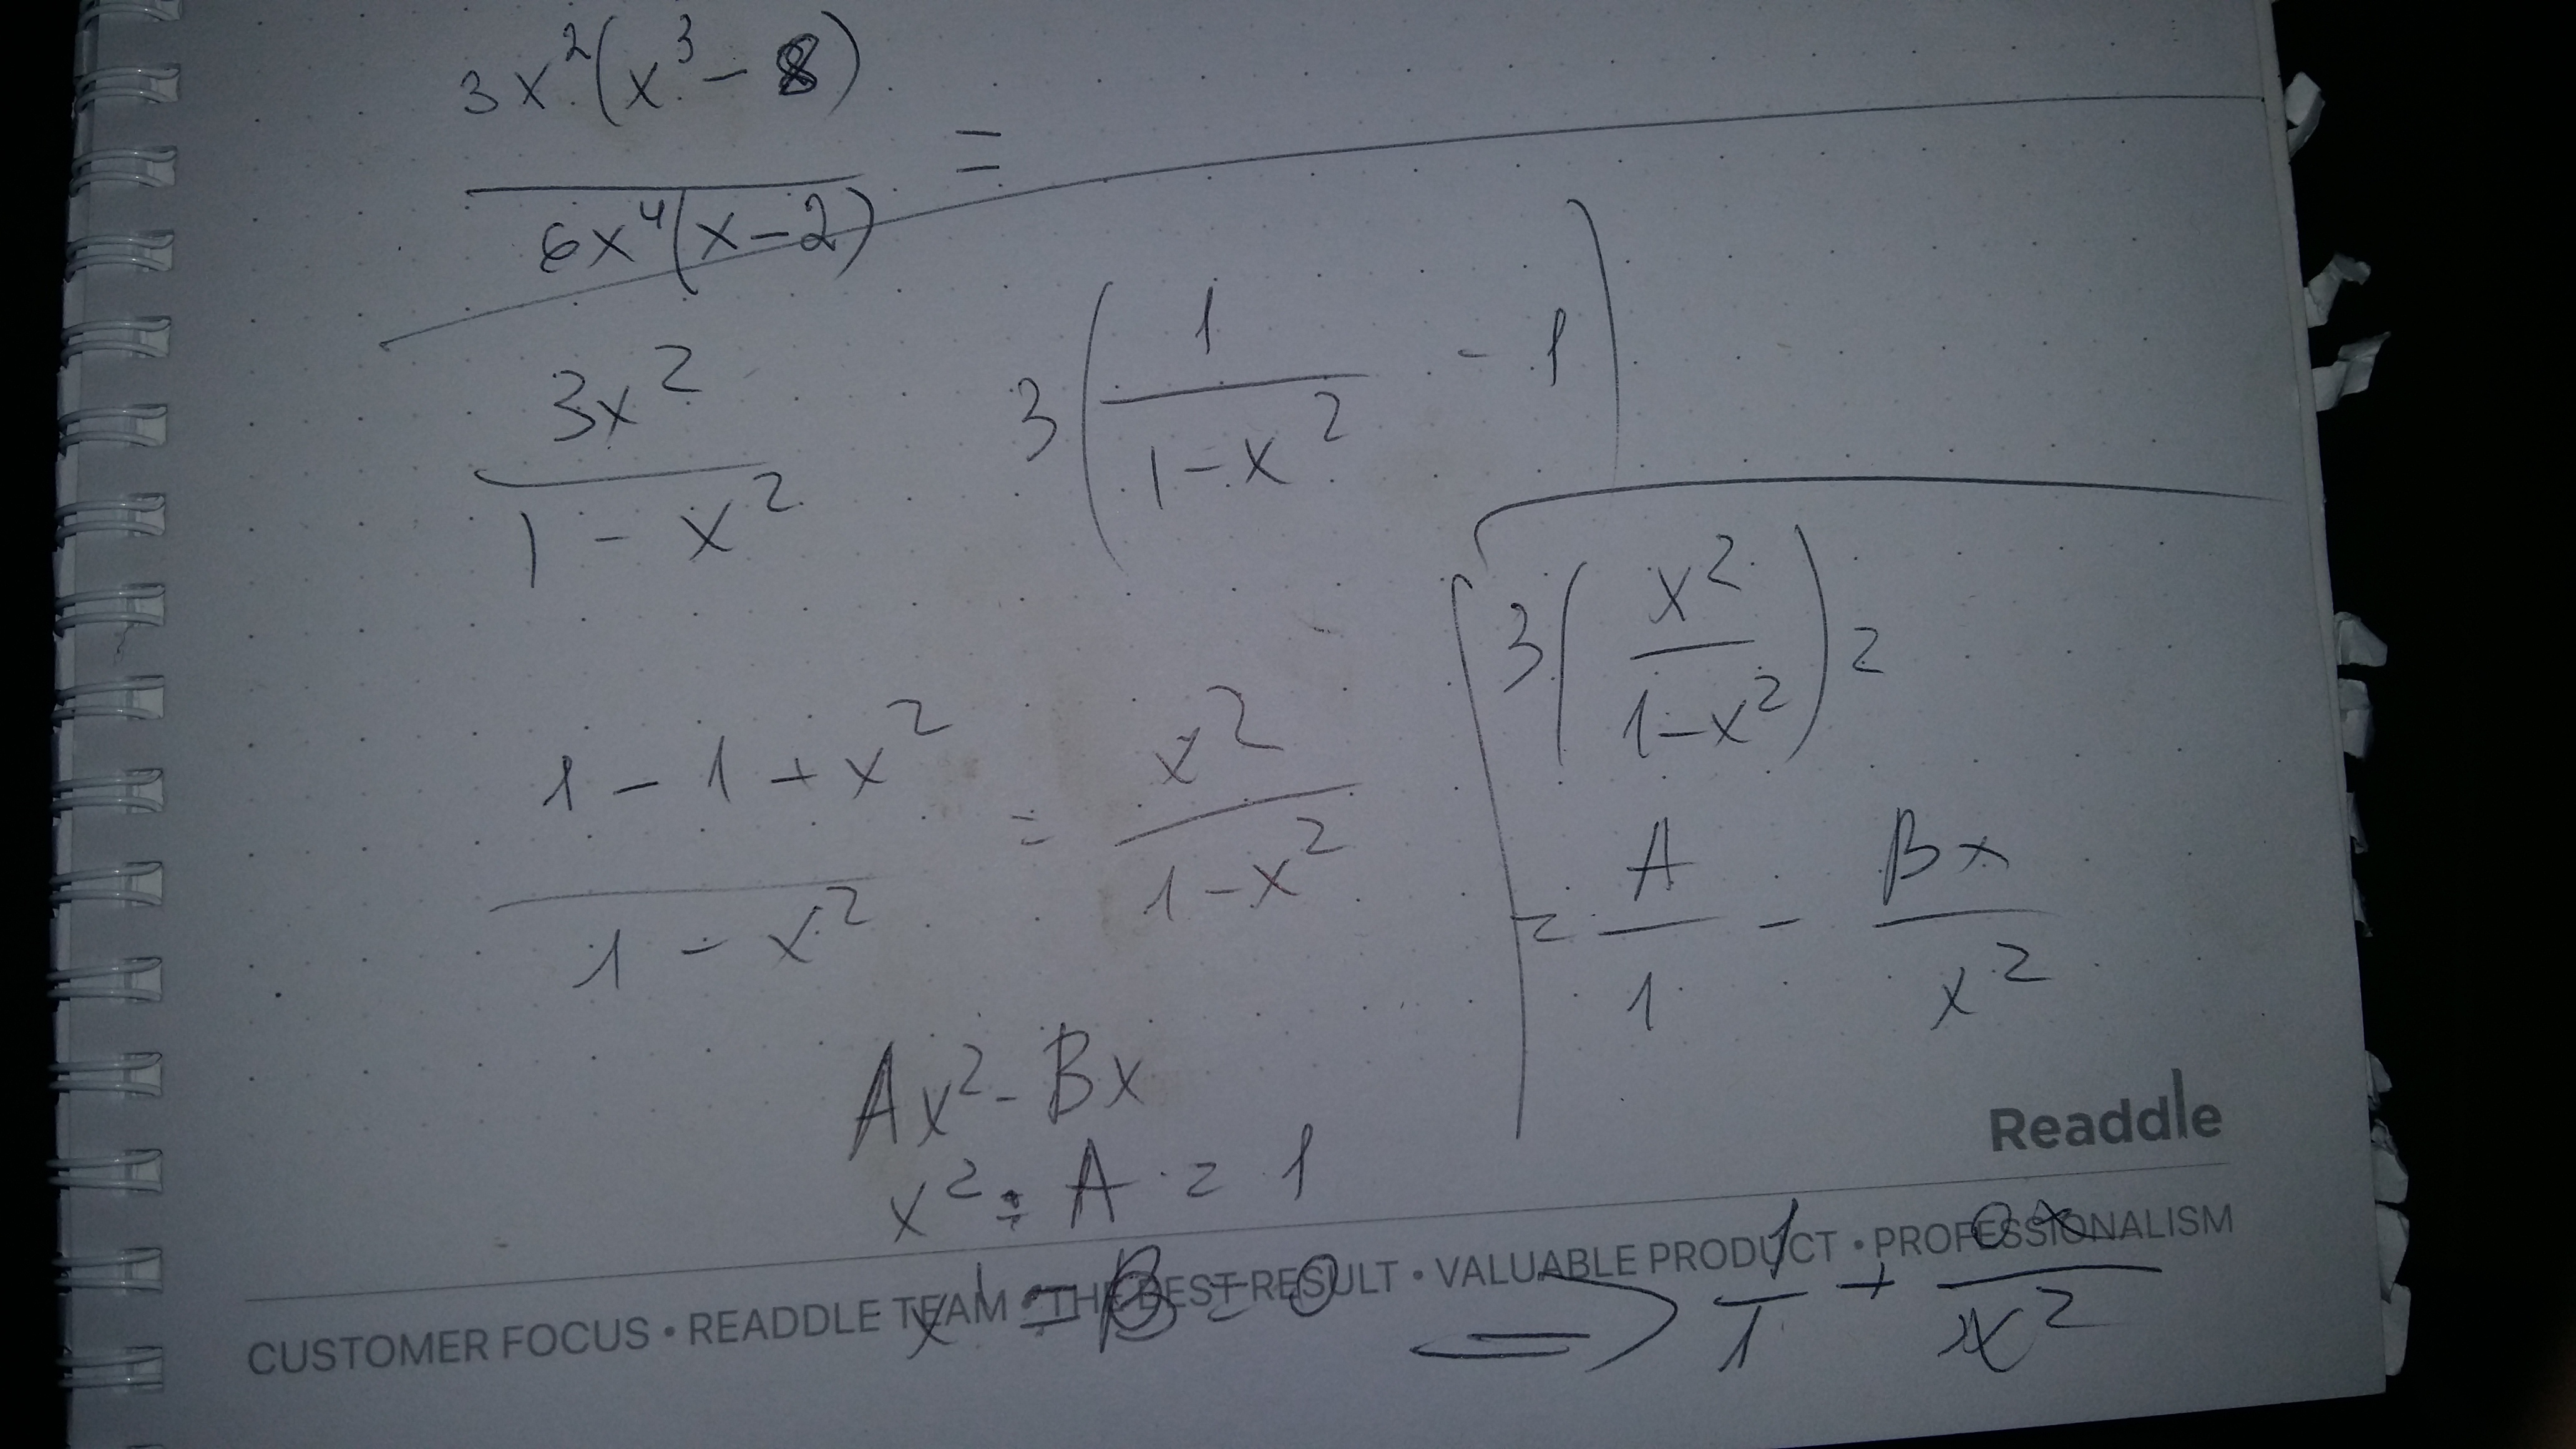 3x²(x³ - 8)
=
6x⁴(x-2)
3x²
1 - x²
3(1/(1-x²) - 1)
1 - 1 + x²
1 - x²
= x²
1-x²
3(x²/(1-x²)) =
= A/1 - Bx/x²
Ax² - Bx
x² : A = 1
x¹ = B = 0 => 1/1 + 0x/x²
Readdle
CUSTOMER FOCUS • READDLE TEAM • THE BEST RESULT • VALUABLE PRODUCT • PROFESSIONALISM